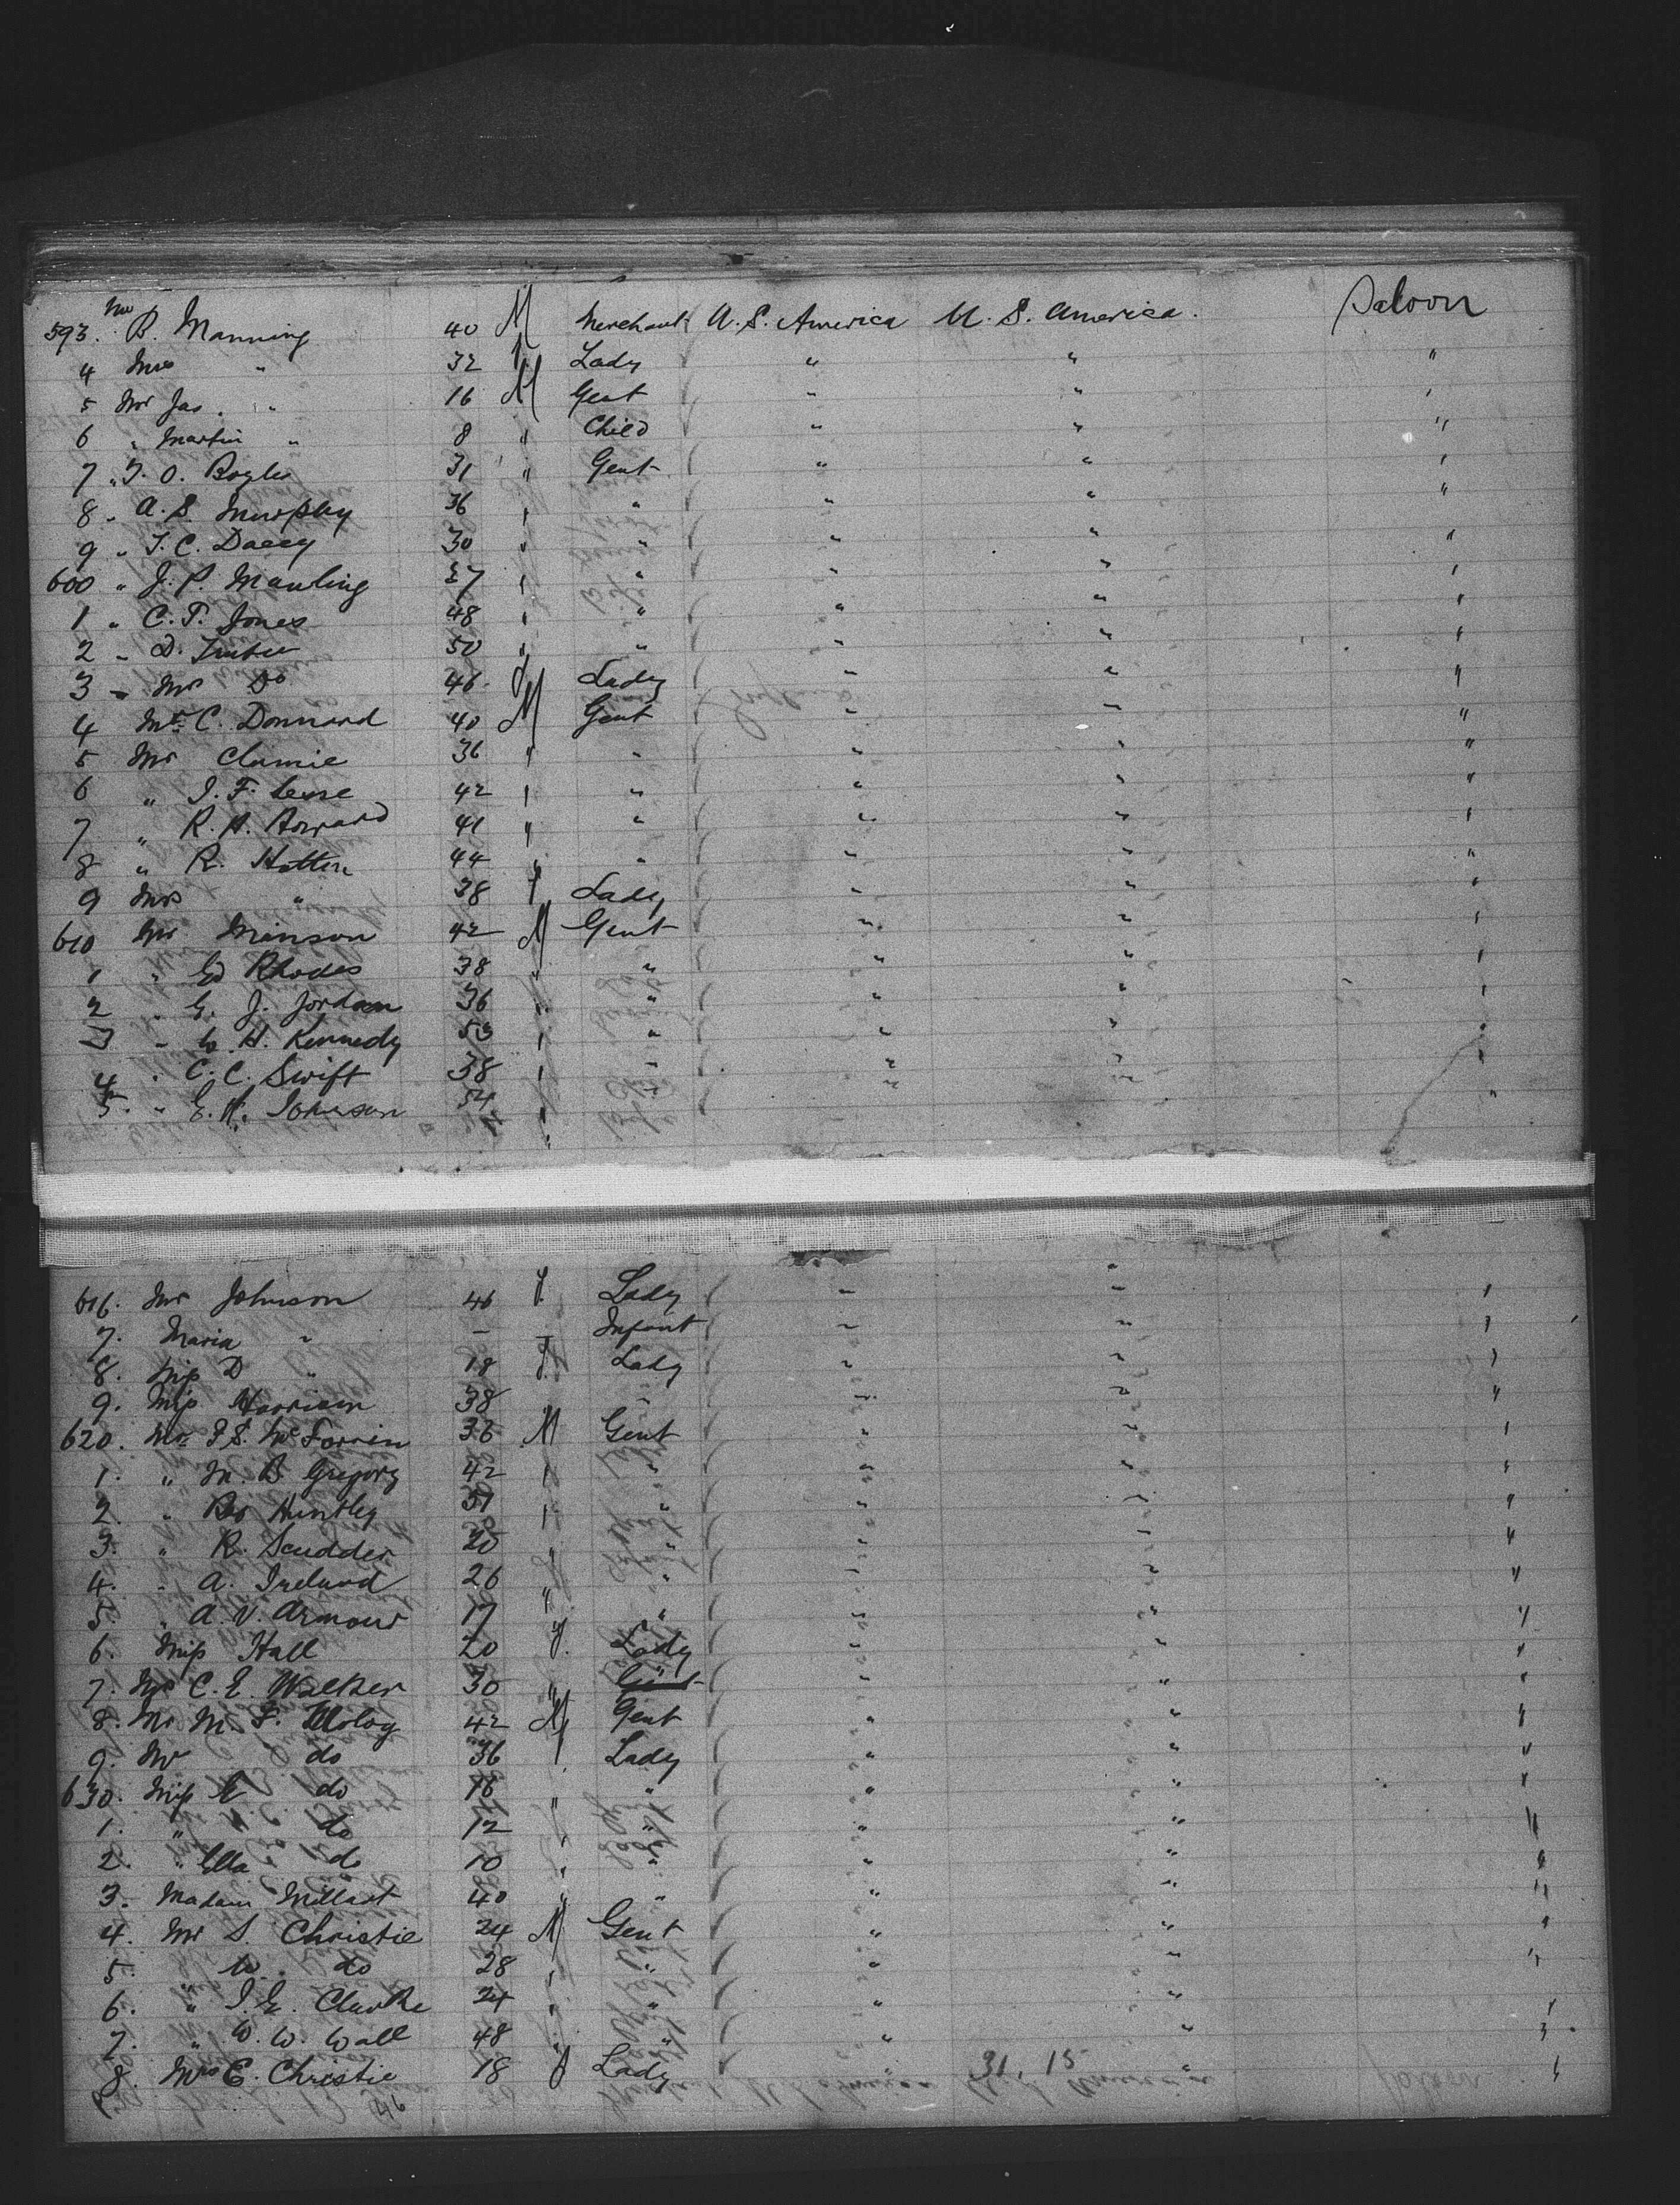 593. Mr B. Manning 40 M Merchant U.S. America U.S. America. Saloon
4 Mrs " 32 f Lady " " "
5 Mr Jas. " 16 M Gent " " "
6 " Martin " 8 " Child " " "
7 " T. O. 31 " Gent " " "
8 " A. S. Murphy 36 " " " " "
9 " T. C. Dacey 30 " " " " "
600 " J. P. 37 " " " " "
1 " C. F. Jones 48 " " " " "
2 " D. 50 " " " " "
3 " Mrs Do 46 f Lady " " "
4 Mr C. Donnard 40 M Gent " " "
5 Mr 36 " " " " "
6 " J. F. 42 " " " " "
7 " R. A. 41 " " " " "
8 " R. Hatten 44 " " " " "
9 Mrs " 38 f Lady " " "
610 Mr Manson 42 M Gent " " "
1 " Ed Rhodes 38 " " " " "
2 " G. J. Jordan 36 " " " " "
3 " W. H. Kennedy 53 " " " " "
4 " C. C. Swift 38 " " " " "
5. " E. H. Johnson 54 " " " " "
616. Mrs Johnson 46 f. Lady " " "
7. Maria " - - Infant " " "
8. Miss D " 18 f. Lady " " "
9. Miss Harrison 38 " " " "
620. Mr F. S. McFarren 36 M Gent " " "
1. " M. B Gregory 42 " " " " "
2. " Huntley 51 " " " " "
3. " R. Scudder 20 " " " " "
4. " A. Ireland 26 " " " " "
5. " A. V. Armour 17 " " " " "
6. Miss Hall 20 f. Lady " " "
7. C. E. Walker 30 " Gent " " "
8. Mr M. F. 42 M Gent " " "
9. do 36 f Lady " " "
630. Miss E do 16 " " " " "
1. " do 12 " " " " "
2. " Ella do 10 " " " " "
3. Madam Millart 40 " " " " "
4. Mr S. Christie 24 M Gent " " "
5. W. do 28 " " " " "
6. " J. E. Clarke 24 " " " " "
7. " W. W. Wall 48 " " " " "
8. Mrs E. Christie 18 f Lady " "
31. 15